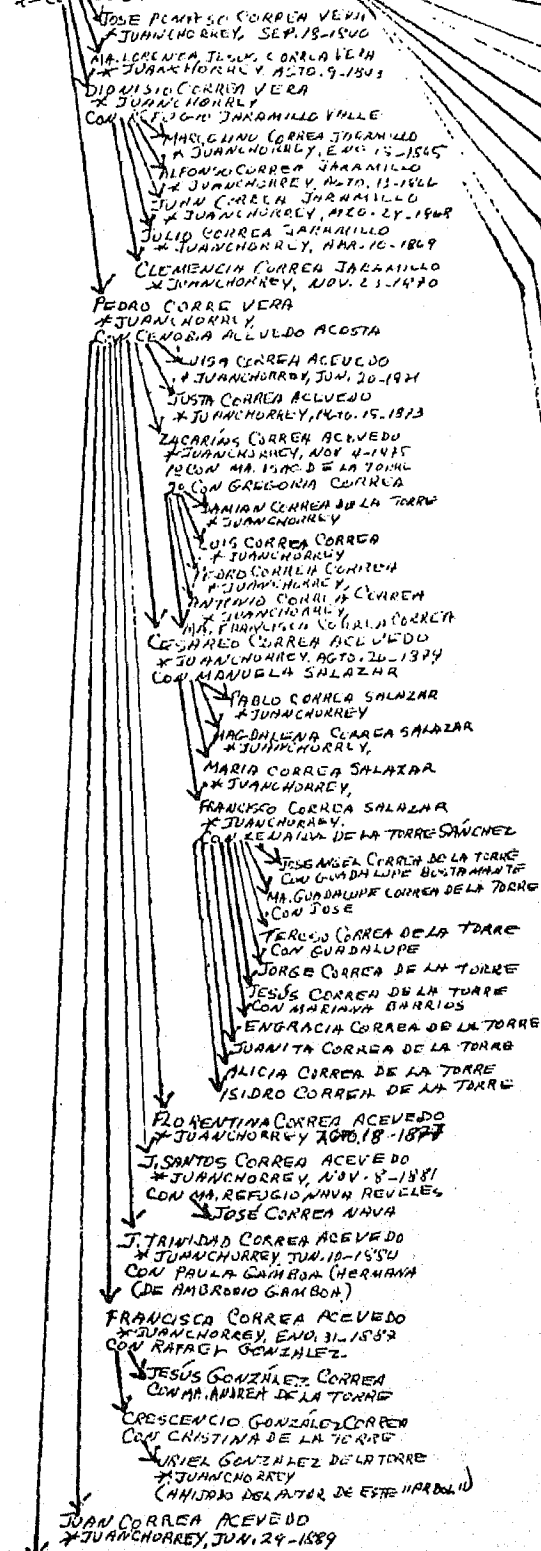 JOSE CORREA VERA
* JUANCHORREY, SEP. 18-1840
MA. LORENZA JESUS CORREA VERA
* JUANCHORREY AGTO. 9-1843
DIONISIO CORREA VERA
* JUANCHORREY
CON REFUGIO JARAMILLO VALLE
MARCELINO CORREA JARAMILLO
* JUANCHORREY, ENO 15-1865
ALFONSO CORREA JARAMILLO
* JUANCHORREY, AGTO. 13-1866
JUAN CORREA JARAMILLO
* JUANCHORREY, MZO. 24-1868
JULIO CORREA JARAMILLO
* JUANCHORREY, ABR. 10-1869
CLEMENCIA CORREA JARAMILLO
* JUANCHORREY, NOV. 23-1870
PEDRO CORRE VERA
* JUANCHORREY,
CON CENOBIA ACEVEDO ACOSTA
LUISA CORREA ACEVEDO
* JUANCHORREY, JUN. 20-1871
JUSTA CORREA ACEVEDO
* JUANCHORREY, 15-1873
ZACARÍAS CORREA ACEVEDO
* JUANCHORREY, NOV 4-1875
1º CON MA. ISAAC DE LA TORRE
2º CON GREGORIA CORREA
DAMIAN CORREA DE LA TORRE
* JUANCHORREY
LUIS CORREA CORREA
* JUANCHORREY
PEDRO CORREA CORREA
* JUANCHORREY,
ANTONIO CORREA CORREA
* JUANCHORREY,
MA. FRANCISCA CORREA CORREA
CESAREO CORREA ACEVEDO
* JUANCHORREY, AGTO. 26-1879
CON MANUELA SALAZAR
PABLO CORREA SALAZAR
* JUANCHORREY
MAGDALENA CORREA SALAZAR
* JUANCHORREY,
MARIA CORREA SALAZAR
* JUANCHORREY,
FRANCISCO CORREA SALAZAR
* JUANCHORREY.
CON ZENAIDA DE LA TORRE SÁNCHEZ
JOSE ANGEL CORREA DE LA TORRE
CON GUADALUPE BUSTAMANTE
MA. GUADALUPE CORREA DE LA TORRE
CON JOSE
TERESO CORREA DE LA TORRE
CON GUADALUPE
JORGE CORREA DE LA TORRE
JESÚS CORREA DE LA TORRE
CON MARIANA BARRIOS
ENGRACIA CORREA DE LA TORRE
JUANITA CORREA DE LA TORRE
ALICIA CORREA DE LA TORRE
ISIDRO CORREA DE LA TORRE
FLORENTINA CORREA ACEVEDO
* JUANCHORREY AGTO. 18-1877
J. SANTOS CORREA ACEVEDO
* JUANCHORREY, NOV. 8-1881
CON MA. REFUGIO NAVA REVELES
JOSÉ CORREA NAVA
J. TRINIDAD CORREA ACEVEDO
* JUANCHORREY, JUN. 10-1884
CON PAULA GAMBOA (HERMANA
(DE AMBROSIO GAMBOA)
FRANCISCA CORREA ACEVEDO
* JUANCHORREY, ENO. 31-1887
CON RAFAEL GONZALEZ.
JESÚS GONZÁLEZ CORREA
CON MA. ANDREA DE LA TORRE
CRESCENCIO GONZÁLEZ CORREA
CON CRISTINA DE LA TORRE
URIEL GONZALEZ DE LA TORRE
* JUANCHORREY
(AHIJADO DEL AUTOR DE ESTE "ARBOL")
JUAN CORREA ACEVEDO
* JUANCHORREY, JUN. 24-1889